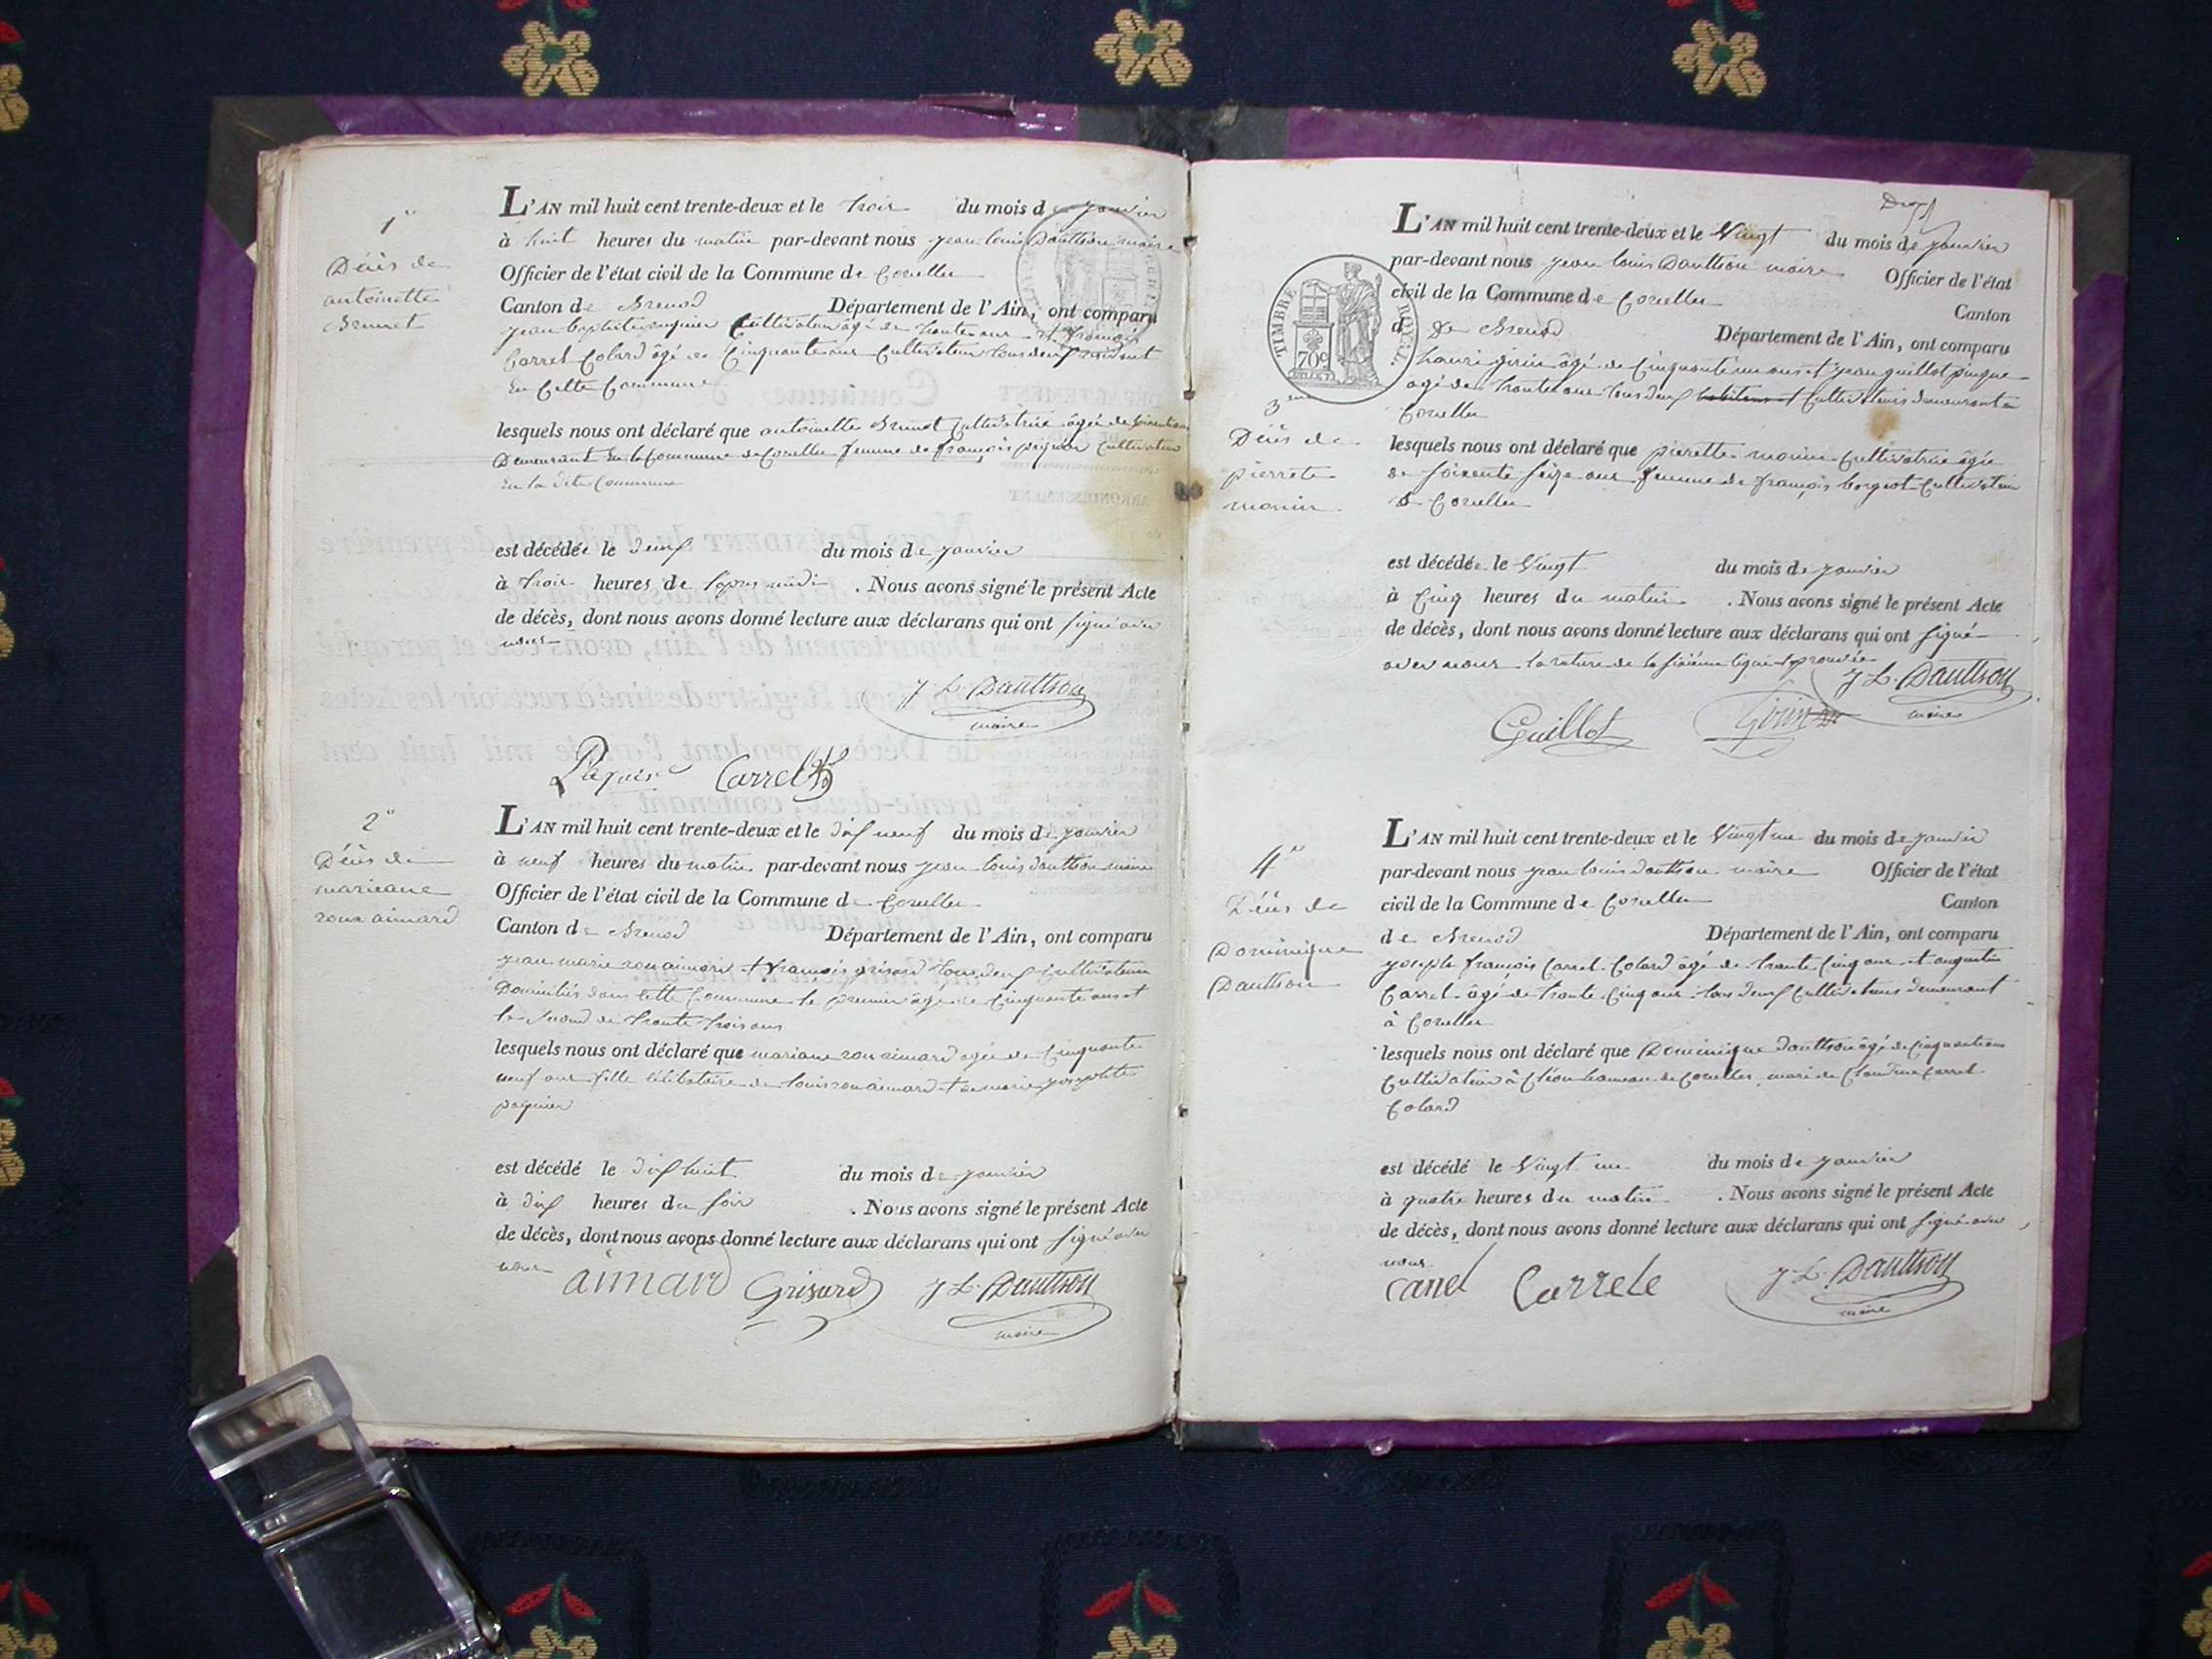 1er
Décès de
antoinette
Brunet
L'AN mil huit cent trente-deux et le trois du mois de janvier
à huit heures du matin par-devant nous jean louis Dautthon maire
Officier de l'état civil de la Commune de Corcelles
Canton de Brenod Département de l'Ain, ont comparu
jean baptiste cultivateur âgé de trente ans et françois
Carrel Colard âgé de Cinquante ans Cultivateur tous deux
en Cette Commune
lesquels nous ont déclaré que antoinette Brunet Cultivatrice âgée de
Demeurant en la Commune de Corcelles femme de françois Cultivateur
en la dite Commune
est décédée le deux du mois de janvier
à trois heures de l'après midi . Nous avons signé le présent Acte
de décès, dont nous avons donné lecture aux déclarans qui ont signé avec
nous
J. L. Dautthon
maire
Carrel
2e
Décès de
marieane
roux aimard
L'AN mil huit cent trente-deux et le dix neuf du mois de janvier
à neuf heures du matin par-devant nous jean louis dautthon maire
Officier de l'état civil de la Commune de Corcelles
Canton de Brenod Département de l'Ain, ont comparu
jean marie roux aimard et françois grisard tous deux Cultivateurs
Domiciliés dans Cette Commune le premier âgé de Cinquante ans et
le second de trente trois ans
lesquels nous ont déclaré que mariane roux aimard agée de Cinquante
neuf ans fille Célibataire de louis roux aimard et de marie
est décédé le dix huit du mois de janvier
à dix heures du soir . Nous avons signé le présent Acte
de décès, dont nous avons donné lecture aux déclarans qui ont signé avec
nous
aimard Grisard J. L. Dautthon
maire
TIMBRE ROYAL
70c
3me
Décès de
pierrete
monin
L'AN mil huit cent trente-deux et le Vingt du mois de janvier
par-devant nous jean louis Dautthon maire Officier de l'état
civil de la Commune de Corcelles Canton
d de Brenod Département de l'Ain, ont comparu
âgé de Cinquante un ans et jean guillot
agé de trente ans tous deux habitans et Cultivateurs demeurant à
Corcelles
lesquels nous ont déclaré que pierrette monin Cultivatrice âgée
de soixante seize ans femme de françois Cultivateur
à Corcelles
est décédée le Vingt du mois de janvier
à Cinq heures du matin . Nous avons signé le présent Acte
de décès, dont nous avons donné lecture aux déclarans qui ont signé
avec nous la rature de la sixième ligne approuvée
J. L. Dautthon
maire
Guillot
4e
Décès de
Dominique
Dautthon
L'AN mil huit cent trente-deux et le Vingt un du mois de janvier
par-devant nous jean louis dautthon maire Officier de l'état
civil de la Commune de Corcelles Canton
de Brenod Département de l'Ain, ont comparu
joseph françois Carrel Colard âgé de trente Cinq ans et augustin
Carrel âgé de trente Cinq ans tous deux Cultivateurs demeurant
à Corcelles
lesquels nous ont déclaré que Dominique dautthon âgé de
Cultivateur à Cléon hameau de Corcelles mari de Claudine Carrel
Colard
est décédé le Vingt un du mois de janvier
à quatre heures du matin . Nous avons signé le présent Acte
de décès, dont nous avons donné lecture aux déclarans qui ont signé avec
nous
Carrel Carrele J. L. Dautthon
maire